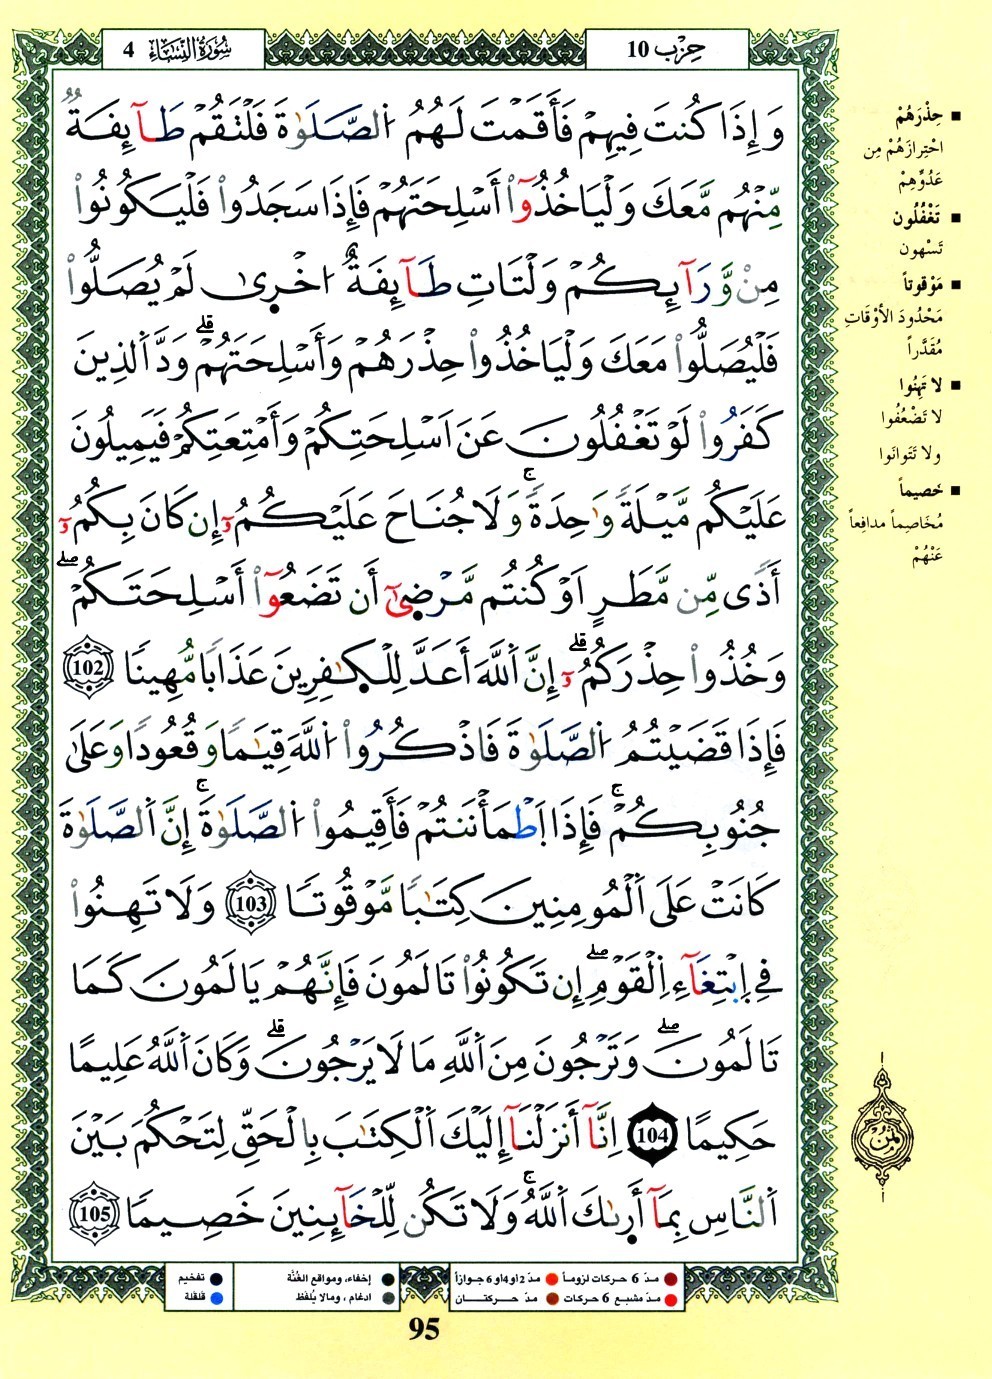 حِزْب 10
سُورَةُ النِّسَاءِ 4
وَإِذَا كُنتَ فِيهِمْ فَأَقَمْتَ لَهُمُ اُ۬لصَّلَوٰةَ فَلْتَقُمْ طَآئِفَةٞ
مِّنْهُم مَّعَكَ وَلْيَاخُذُوٓاْ أَسْلِحَتَهُمْ فَإِذَا سَجَدُواْ فَلْيَكُونُواْ
مِنْ وَّرَآئِكُمْ وَلْتَاتِ طَآئِفَةٌ ا۟خْر۪ىٰ لَمْ يُصَلُّواْ
فَلْيُصَلُّواْ مَعَكَ وَلْيَاخُذُواْ حِذْرَهُمْ وَأَسْلِحَتَهُمْۗ وَدَّ اَ۬لذِينَ
كَفَرُواْ لَوْ تَغْفُلُونَ عَنَ اَسْلِحَتِكُمْ وَأَمْتِعَتِكُمْ فَيَمِيلُونَ
عَلَيْكُم مَّيْلَةٗ وَٰحِدَةٗۚ وَلَا جُنَاحَ عَلَيْكُمُۥٓ إِن كَانَ بِكُمُۥٓ
أَذٗى مِّن مَّطَرٍ اَوْ كُنتُم مَّرْض۪ىٰٓ أَن تَضَعُوٓاْ أَسْلِحَتَكُمْۖ
وَخُذُواْ حِذْرَكُمُۥٓۗ إِنَّ اَ۬للَّهَ أَعَدَّ لِلْكٰ۪فِرِينَ عَذَاباٗ مُّهِيناٗ 102
فَإِذَا قَضَيْتُمُ اُ۬لصَّلَوٰةَ فَاذْكُرُواْ اُ۬للَّهَ قِيَٰماٗ وَقُعُوداٗ وَعَلَىٰ
جُنُوبِكُمْۚ فَإِذَا اَ۪طْمَأْنَنتُمْ فَأَقِيمُواْ اُ۬لصَّلَوٰةَۚ إِنَّ اَ۬لصَّلَوٰةَ
كَانَتْ عَلَى اَ۬لْمُومِنِينَ كِتَٰباٗ مَّوْقُوتاٗ 103 وَلَا تَهِنُواْ
فِي اِ۪بْتِغَآءِ اِ۬لْقَوْمِۖ إِن تَكُونُواْ تَالَمُونَ فَإِنَّهُمْ يَالَمُونَ كَمَا
تَالَمُونَۖ وَتَرْجُونَ مِنَ اَ۬للَّهِ مَا لَا يَرْجُونَۗ وَكَانَ اَ۬للَّهُ عَلِيماً
حَكِيماً 104 اِنَّآ أَنزَلْنَآ إِلَيْكَ اَ۬لْكِتَٰبَ بِالْحَقِّ لِتَحْكُمَ بَيْنَ
اَ۬لنَّاسِ بِمَآ أَر۪ىٰكَ اَ۬للَّهُۚ وَلَا تَكُن لِّلْخَآئِنِينَ خَصِيماٗ 105
■ حِذْرَهُمْ
احْتِرازَهُمْ مِن
عَدُوِّهِمْ
■ تَغْفُلُون
تَسْهون
■ مَوْقوتاً
مَحْدُودَ الأوْقَاتِ
مُقَدَّراً
■ لا تَهِنُوا
لا تَضْعُفُوا
ولا تَتَوانَوا
■ خَصيماً
مُخَاصِماً مدافِعاً
عَنْهُمْ
مدّ 6 حركات لزوماً
مدّ 2 أو 4 أو 6 جوازاً
مدّ مشبع 6 حركات
مدّ حركتان
إخفاء، ومواقع الغُنَّة
ادغام ، ومالا يُلفَظ
تفخيم
قلقلة
95